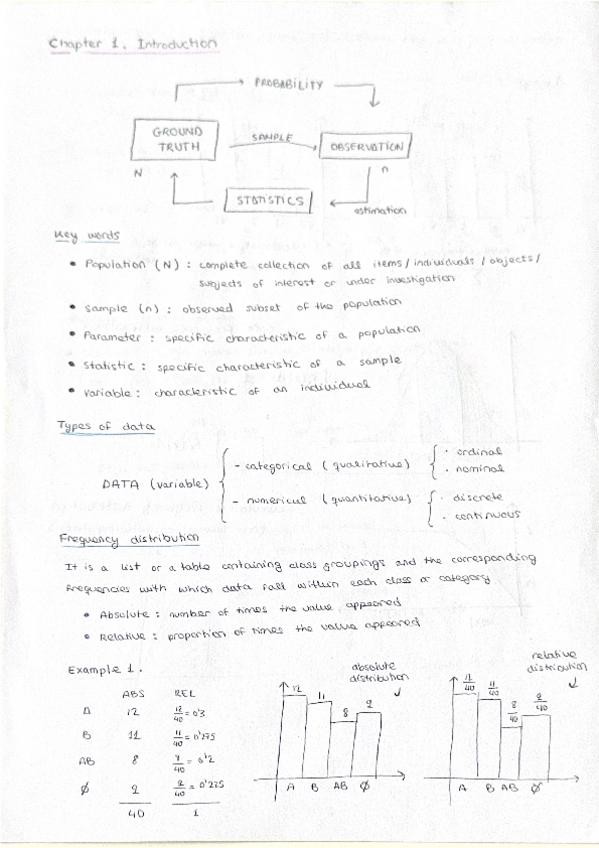 Chapter 1. Introduction
PROBABILITY
GROUND
TRUTH
SAMPLE
OBSERVATION
N
n
STATISTICS
estimation
Key words
• Population (N) : complete collection of all items / individuals / objects /
subjects of interest or under investigation
• Sample (n) : observed subset of the population
• Parameter : specific characteristic of a population
• Statistic : specific characteristic of a sample
• Variable : characteristic of an individual
Types of data
DATA (variable)
- categorical (qualitative)
· ordinal
· nominal
- numerical (quantitative)
· discrete
· continuous
Frequency distribution
It is a list or a table containing class groupings and the corresponding
frequencies with which data fall within each class or category
• Absolute : number of times the value appeared
• Relative : proportion of times the value appeared
Example 1.
ABS REL
A 12 12/40 = 0'3
B 11 11/40 = 0'275
AB 8 8/40 = 0'2
Ø 9 9/40 = 0'225
40 1
absolute
distribution
12 11 8 9
A B AB Ø
relative
distribution
12/40 11/40 8/40 9/40
A B AB Ø